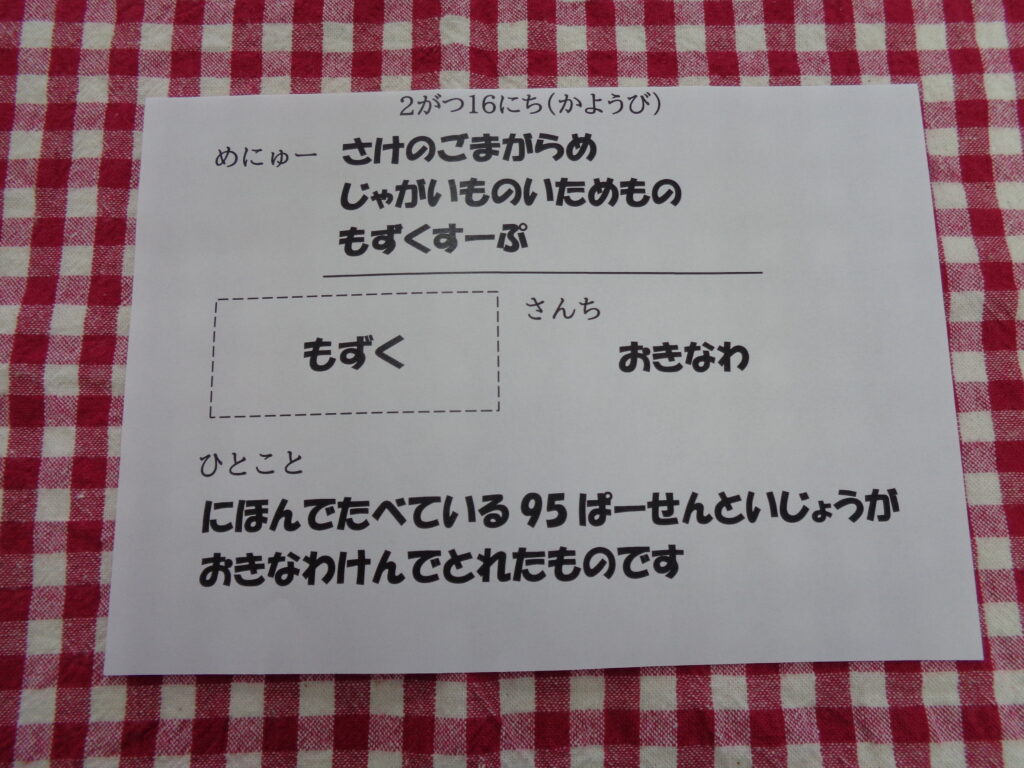 2がつ16にち(かようび)
めにゅー さけのごまがらめ
じゃがいものいためもの
もずくすーぷ
もずく
さんち
おきなわ
ひとこと
にほんでたべている 95 ぱーせんといじょうが
おきなわけんでとれたものです